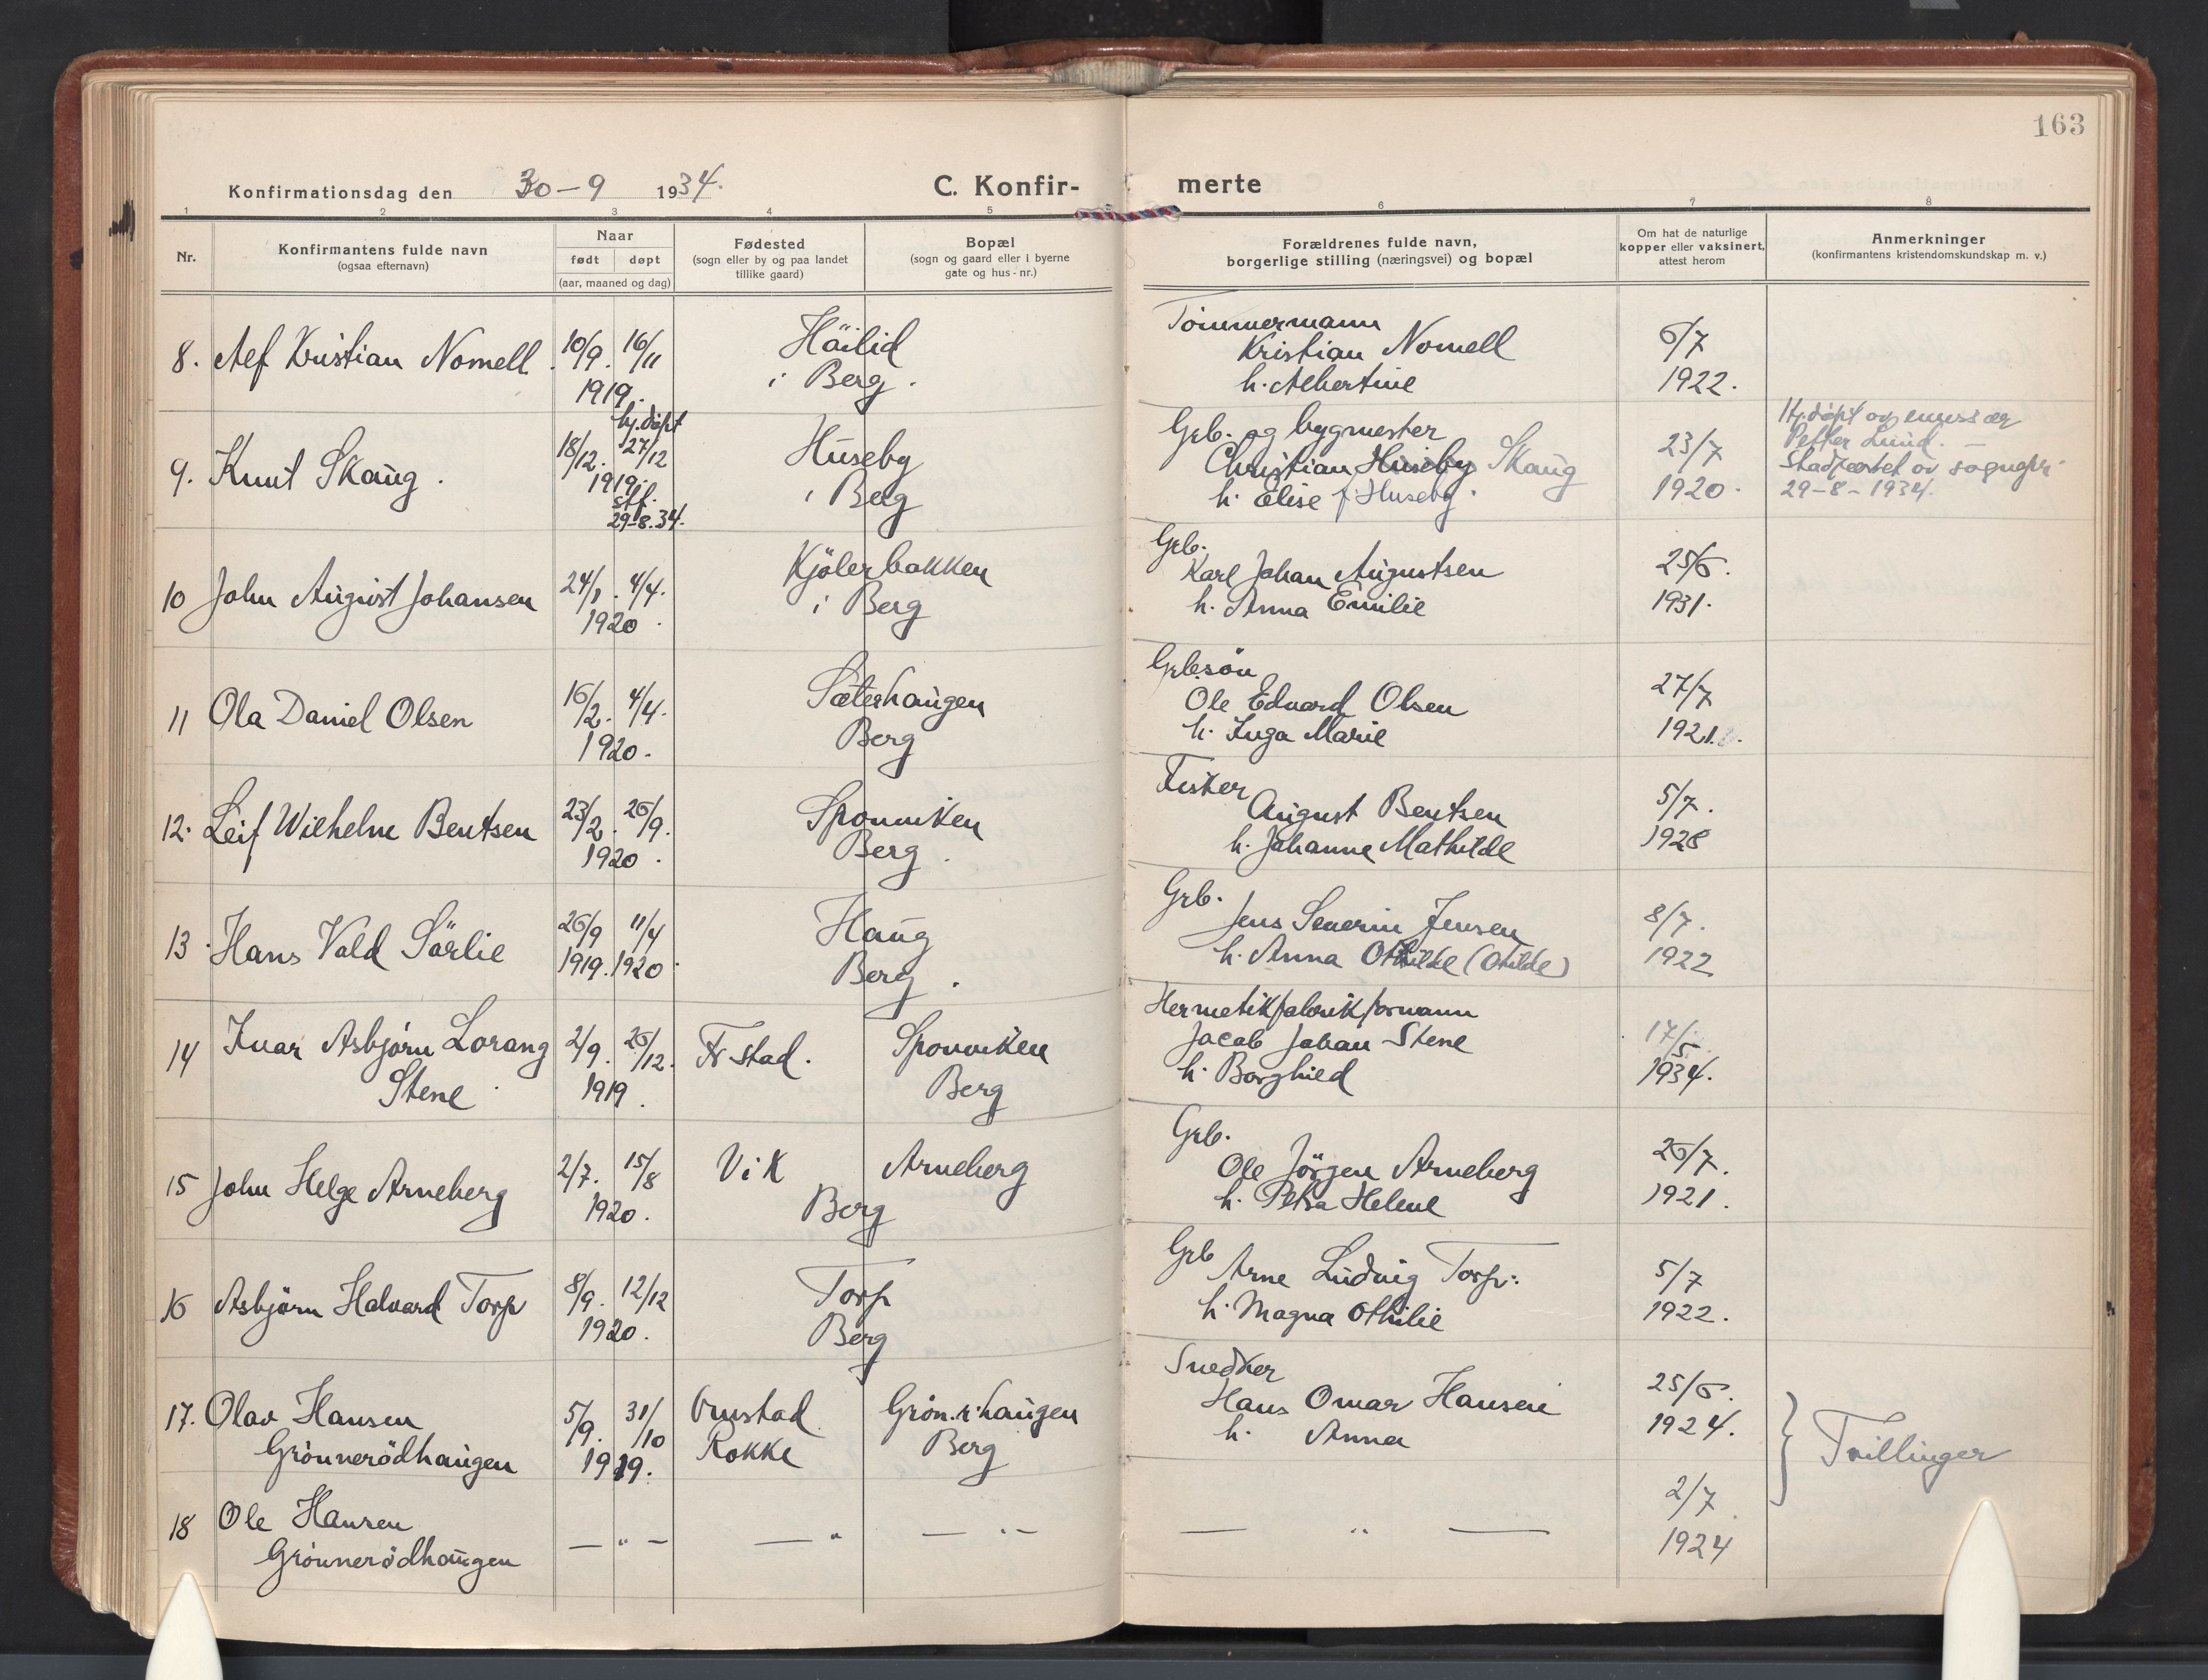 163
Konfirmationsdag den 30-9 1934. C. Konfir- merte
1 2 3 4 5 6 7 8
Nr.
Konfirmantens fulde navn
(ogsaa efternavn)
Naar
født døpt
(aar, maaned og dag)
Fødested
(sogn eller by og paa landet
tillike gaard)
Bopæl
(sogn og gaard eller i byerne
gate og hus-nr.)
Forældrenes fulde navn,
borgerlige stilling (næringsvei) og bopæl
Om hat de naturlige
kopper eller vaksinert,
attest herom
Anmerkninger
(konfirmantens kristendomskundskap m. v.)
8. Alf Kristian Nomell. 10/9. 16/11
1919.
Häilid
i Berg.
Tömmermann
Kristian Nomell
h. Albertine
6/7
1922.
9. Knut Skaug. 18/12. hj.döpt 27/12
1919.
stf.
29-8.34.
Huseby
i Berg
Grb. og bygmester
Christian Huseby Skaug
h. Elise f. Huseby.
23/7
1920.
Hj.döpt av
Petter Lund. —
Stadfæstet av sognepr.
29-8-1934.
10 John August Johansen 24/1. 4/4.
1920.
Kjölerbakken
i Berg
Grb.
Karl Johan Augustsen
h. Anna Emilie
25/6.
1931.
11 Ola Daniel Olsen 16/2. 4/4.
1920.
Sæterhaugen
Berg
Grb.sön
Ole Edvard Olsen
h. Inga Marie
27/7
1921.
12. Leif Wilhelm Bentsen 23/2. 26/9.
1920.
Sponviken
Berg.
Fisker
August Bentsen
h. Johanne Mathilde
5/7.
1928
13. Hans Vold Sörlie 26/9 11/4
1919. 1920.
Haug
Berg.
Grb.
Jens Severin Jensen
h. Anna Othilde (Otilde)
8/7.
1922
14 Ivar Asbjörn Lorang
Stene
2/9. 26/12.
1919.
Fr.stad.
Sponviken
Berg
Hermetikfabrikformann
Jacob Johan Stene
h. Borghild
17/5.
1934.
15 John Helge Arneberg 2/7. 15/8
1920.
Vik Arneberg
Berg
Grb.
Ole Jörgen Arneberg
h. Petra Helene
26/7.
1921.
16 Asbjörn Halvard Torp 8/9. 12/12
1920.
Torp
Berg
Grb
Arne Ludvig Torp.
h. Magna Othilie
5/7
1922.
17. Olav Hansen
Grönnerödhaugen
5/9. 31/10
1919.
Rokke
Grön.r.haugen
Berg
Snedker
Hans Omar Hansen
h. Anna
25/6.
1924.
Tvillinger
18 Ole Hansen
Grönnerödhaugen
— " — — " — " — — " —
2/7
1924